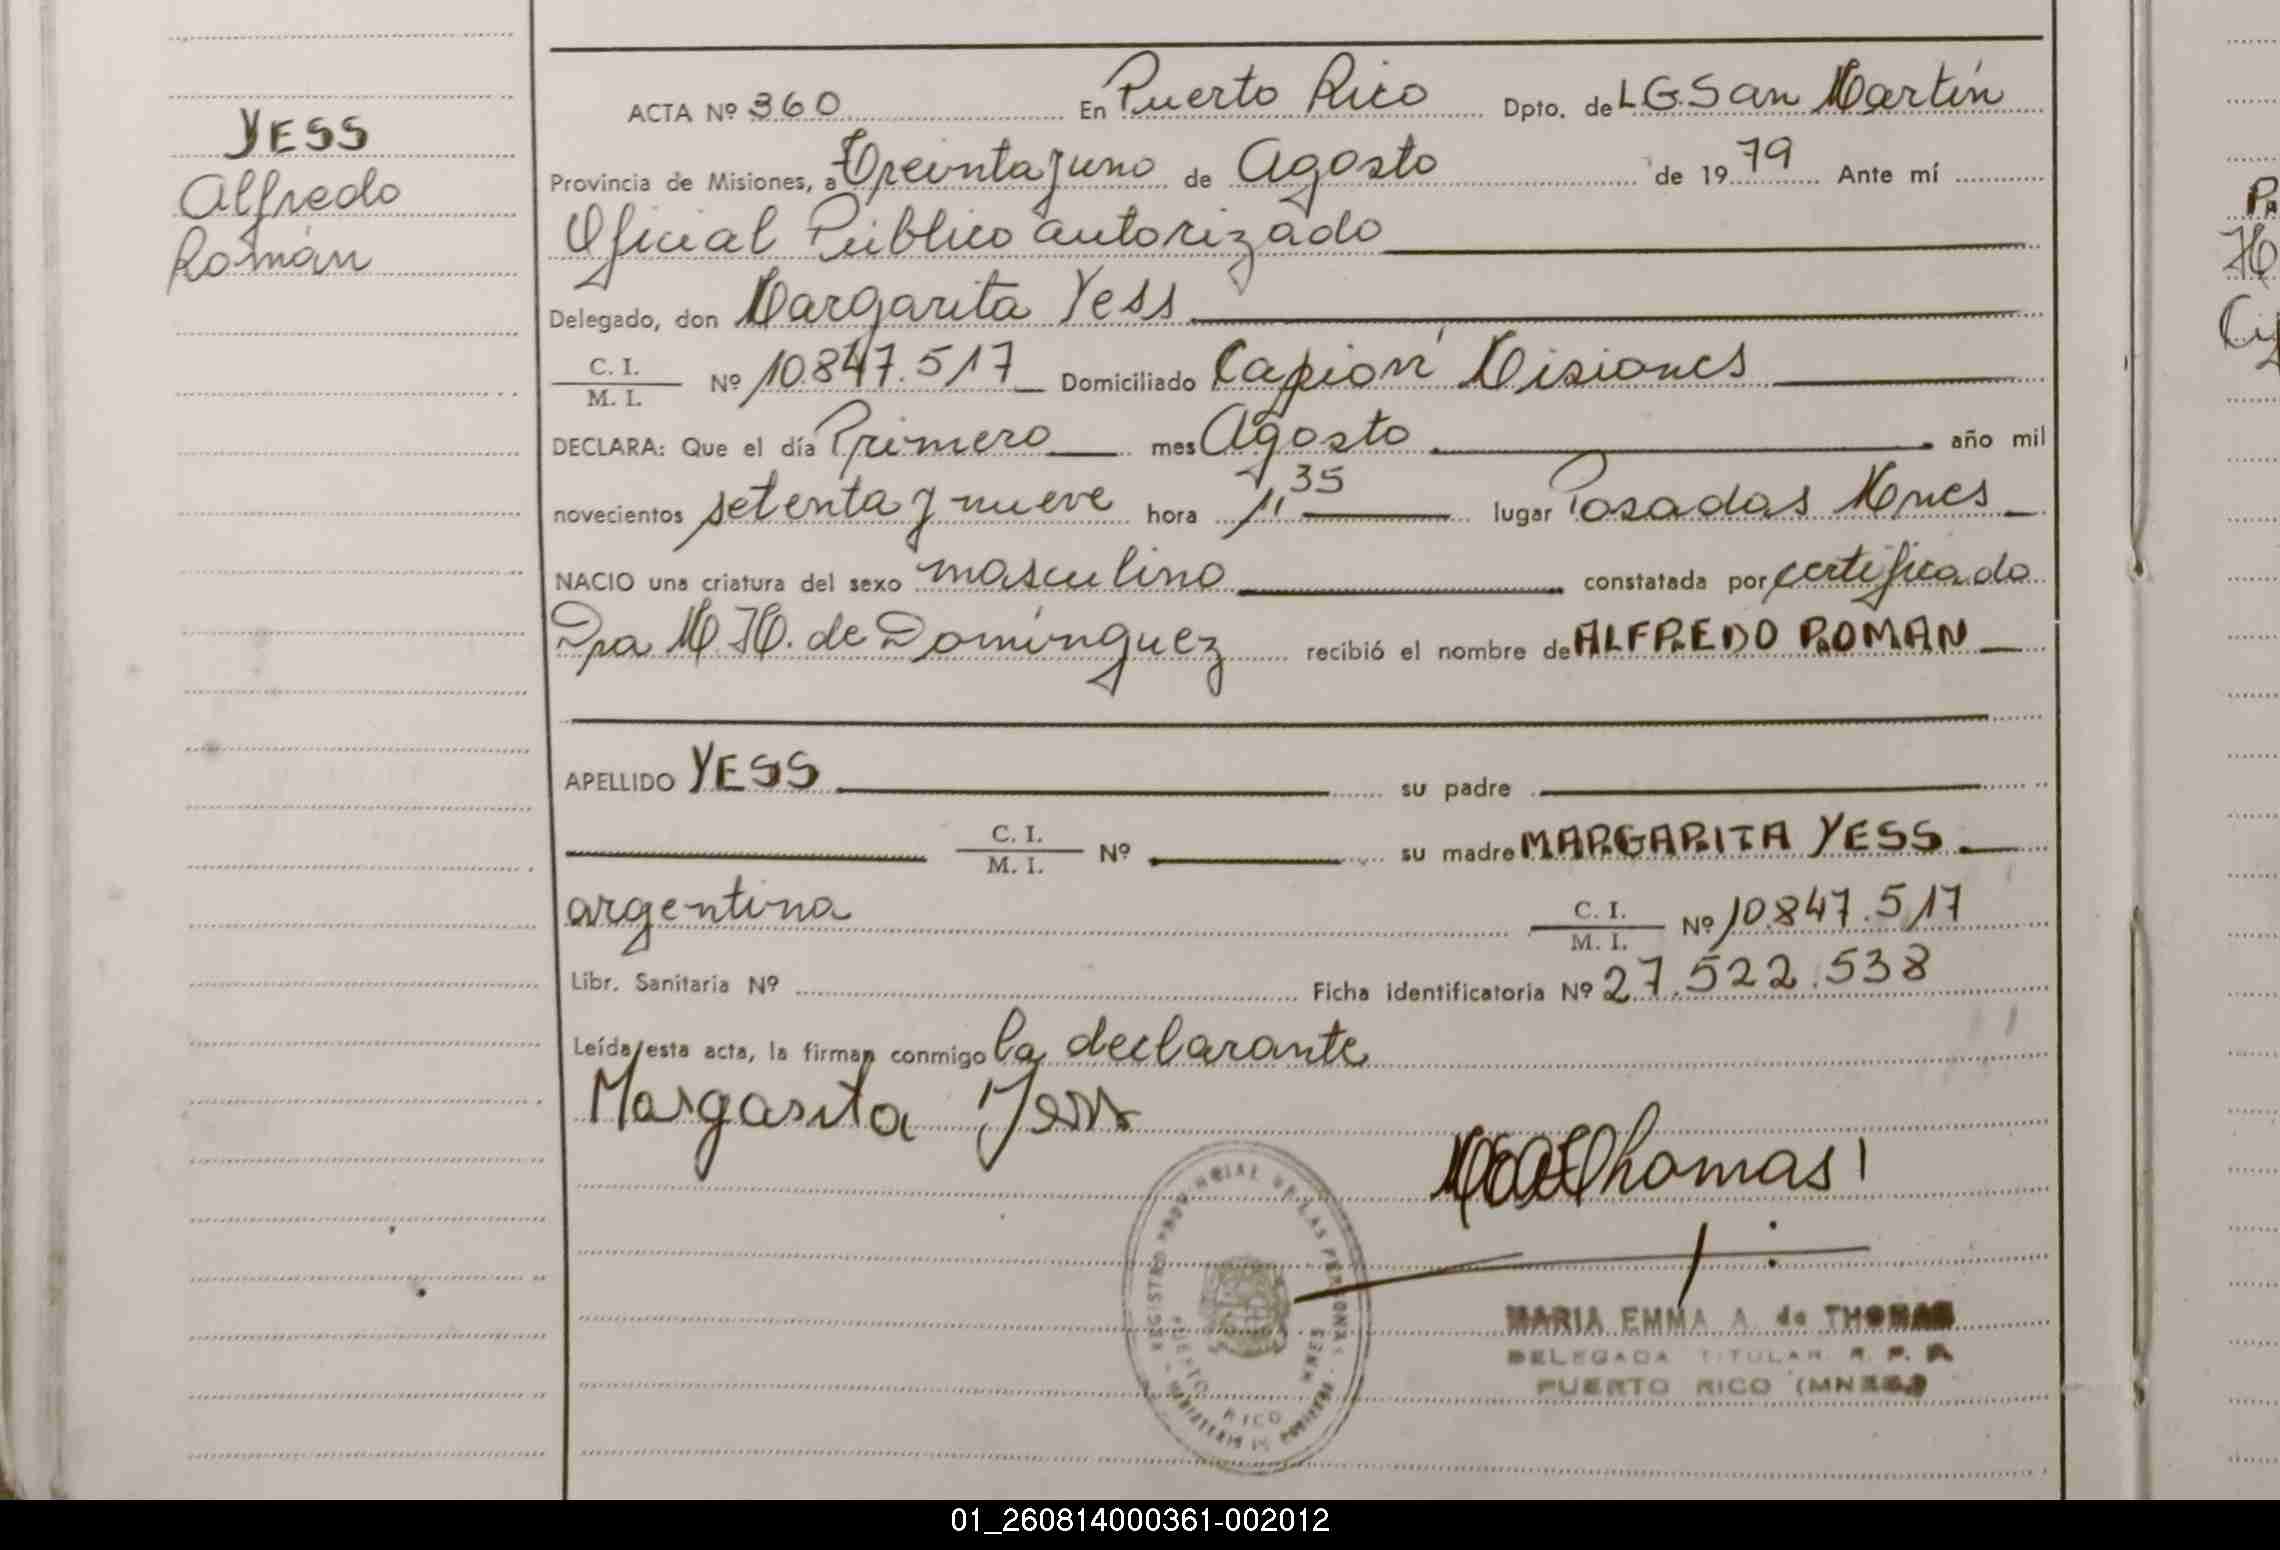 YESS
Alfredo
Román
ACTA Nº 360 En Puerto Rico Dpto. de L.G.San Martín
Provincia de Misiones, a Treinta y uno de Agosto de 1979 Ante mí
Oficial Público autorizado
Delegado, don Margarita Yess
C. I.
M. I. Nº 10.847.517 Domiciliado Capioví Misiones
DECLARA: Que el día Primero mes Agosto año mil
novecientos setenta y nueve hora 11,35 lugar Posadas Mnes
NACIO una criatura del sexo masculino constatada por certificado
Dra M. H. de Domínguez recibió el nombre de ALFREDO ROMAN
APELLIDO YESS su padre
C. I.
M. I. Nº su madre MARGARITA YESS
argentina C. I.
M. I. Nº 10.847.517
Libr. Sanitaria Nº Ficha identificatoria Nº 27.522.538
Leída esta acta, la firman conmigo la declarante
Margarita Yess
Thomas
REGISTRO PROVINCIAL DE LAS PERSONAS
PUERTO RICO MNES
MARIA EMMA A. de THOMAS
DELEGADA TITULAR R. P. P.
PUERTO RICO (MNES.)
01_260814000361-002012